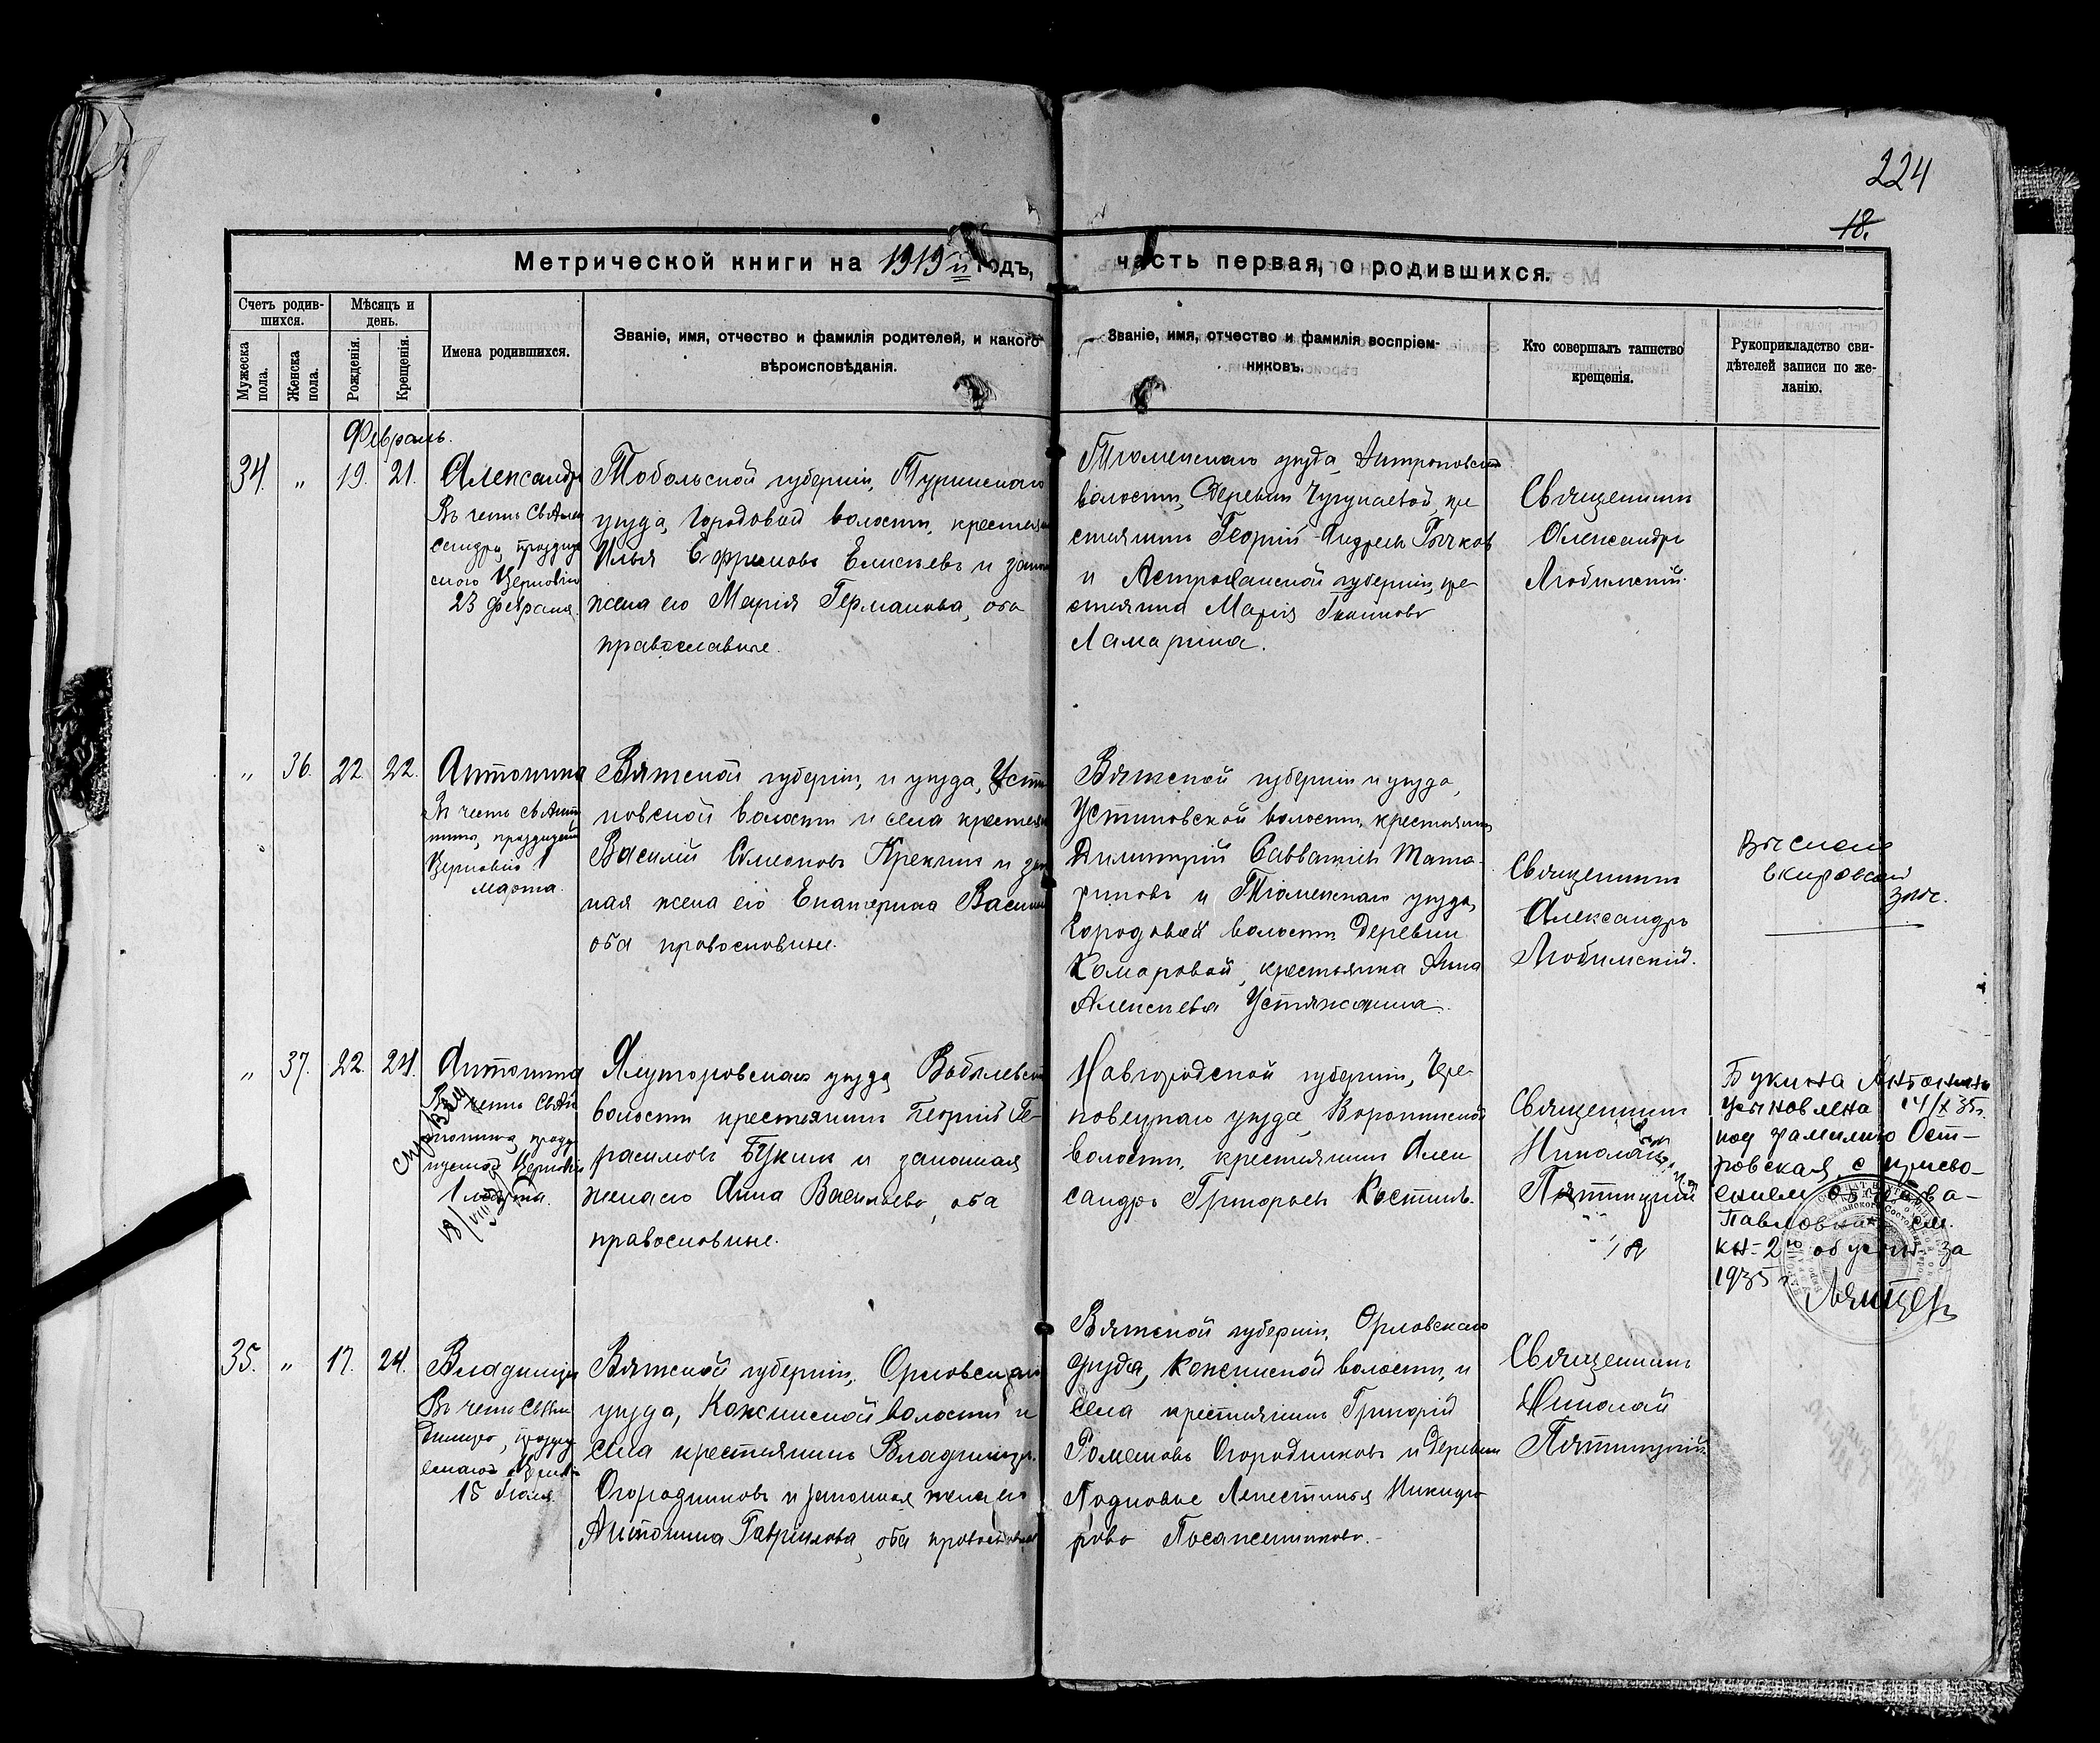 224
18.
Метрической книги на 1919 й годъ,
часть первая, о родившихся.
Счетъ родив-
шихся.
Мужеска
пола.
Женска
пола.
Мѣсяцъ и
день.
Рожденія.
Крещенія.
Имена родившихся.
Званіе, имя, отчество и фамилія родителей, и какого
вѣроисповѣданія.
Званіе, имя, отчество и фамилія воспріем-
никовъ.
Кто совершалъ таинство
крещенія.
Рукоприкладство сви-
дѣтелей записи по же-
ланію.
Февраль.
34. " 19. 21.
Александръ
Въ честь Св Алек
сандра, праздну
23 февраля.
Тобольской губерніи, Туринскаго
уѣзда, Городовой волости, крестьян
Илья Ефремовъ Елисѣевъ и закон
жена его Марія Германова, оба
православные.
Тюменскаго уѣзда, Антроповской
волости, Деревни Чугунаевой, кре
стьянинъ Георгій Андреевъ Рычков
и Астраханской губерніи, кре-
стьянка Марія
Ламарина.
Священникъ
Александръ
Любимскій.
" 36. 22 22.
Антонина
Въ честь Св Анто
Церковію 1
марта.
Вятской губерніи, и уѣзда, Усти
новской волости и села крестьян
Василій Симеоновъ Крекнин и зак
ная жена его Екатерина Василь
оба православные.
Вятской губерніи и уѣзда,
Устиновской волости, крестьянинъ
Димитрій Савватіевъ Тата-
риновъ и Тюменскаго уѣзда,
Городовой волости Деревни
Комаровой, крестьянка Анна
Алексѣева Устюжанина.
Священникъ
Александръ
Любимскій.
Выслано
в кировский
загс.
" 37. 22. 24.
Антонина
Въ честь Св Ан
тонины, празд
1 марта.
справка
Ялуторовскаго уѣзда Бобылевской
волости крестьянинъ Георгій Ге-
расимовъ Букинъ и законная
жена его Анна Васильева, оба
православные.
Новгородской губерніи, Чере-
повецкаго уѣзда, Воротинской
волости, крестьянинъ Алек
сандръ Григорьевъ Костинъ.
Священникъ
Николай
Пятницкій
Букина Антонина
усыновлена 14/X 35г.
под фамилию Ост-
ровская с присво-
ением отчества -
Павловна см.
кн - 2ю об усын. за
1935 г
35. " 17. 24.
Владиміръ
Въ честь Св Вла
диміра, праздну
емаго Церков
15 Іюля
Вятской губерніи, Орловскаго
уѣзда, Кокшинской волости и
села крестьянинъ Владиміръ
Огородниковъ и законная жена его
Антонина Гавріилова, оба православные
Вятской губерніи, Орловскаго
уѣзда, Кокшинской волости, и
села крестьянинъ Григорій
Романовъ Огородниковъ и деревни
Никифо
рова Посаженникова.
Священникъ
Николай
Пятницкій.